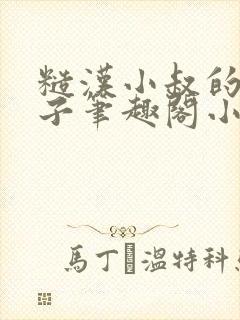 糙漢小叔的
子筆趣閣小
馬丁 溫特科